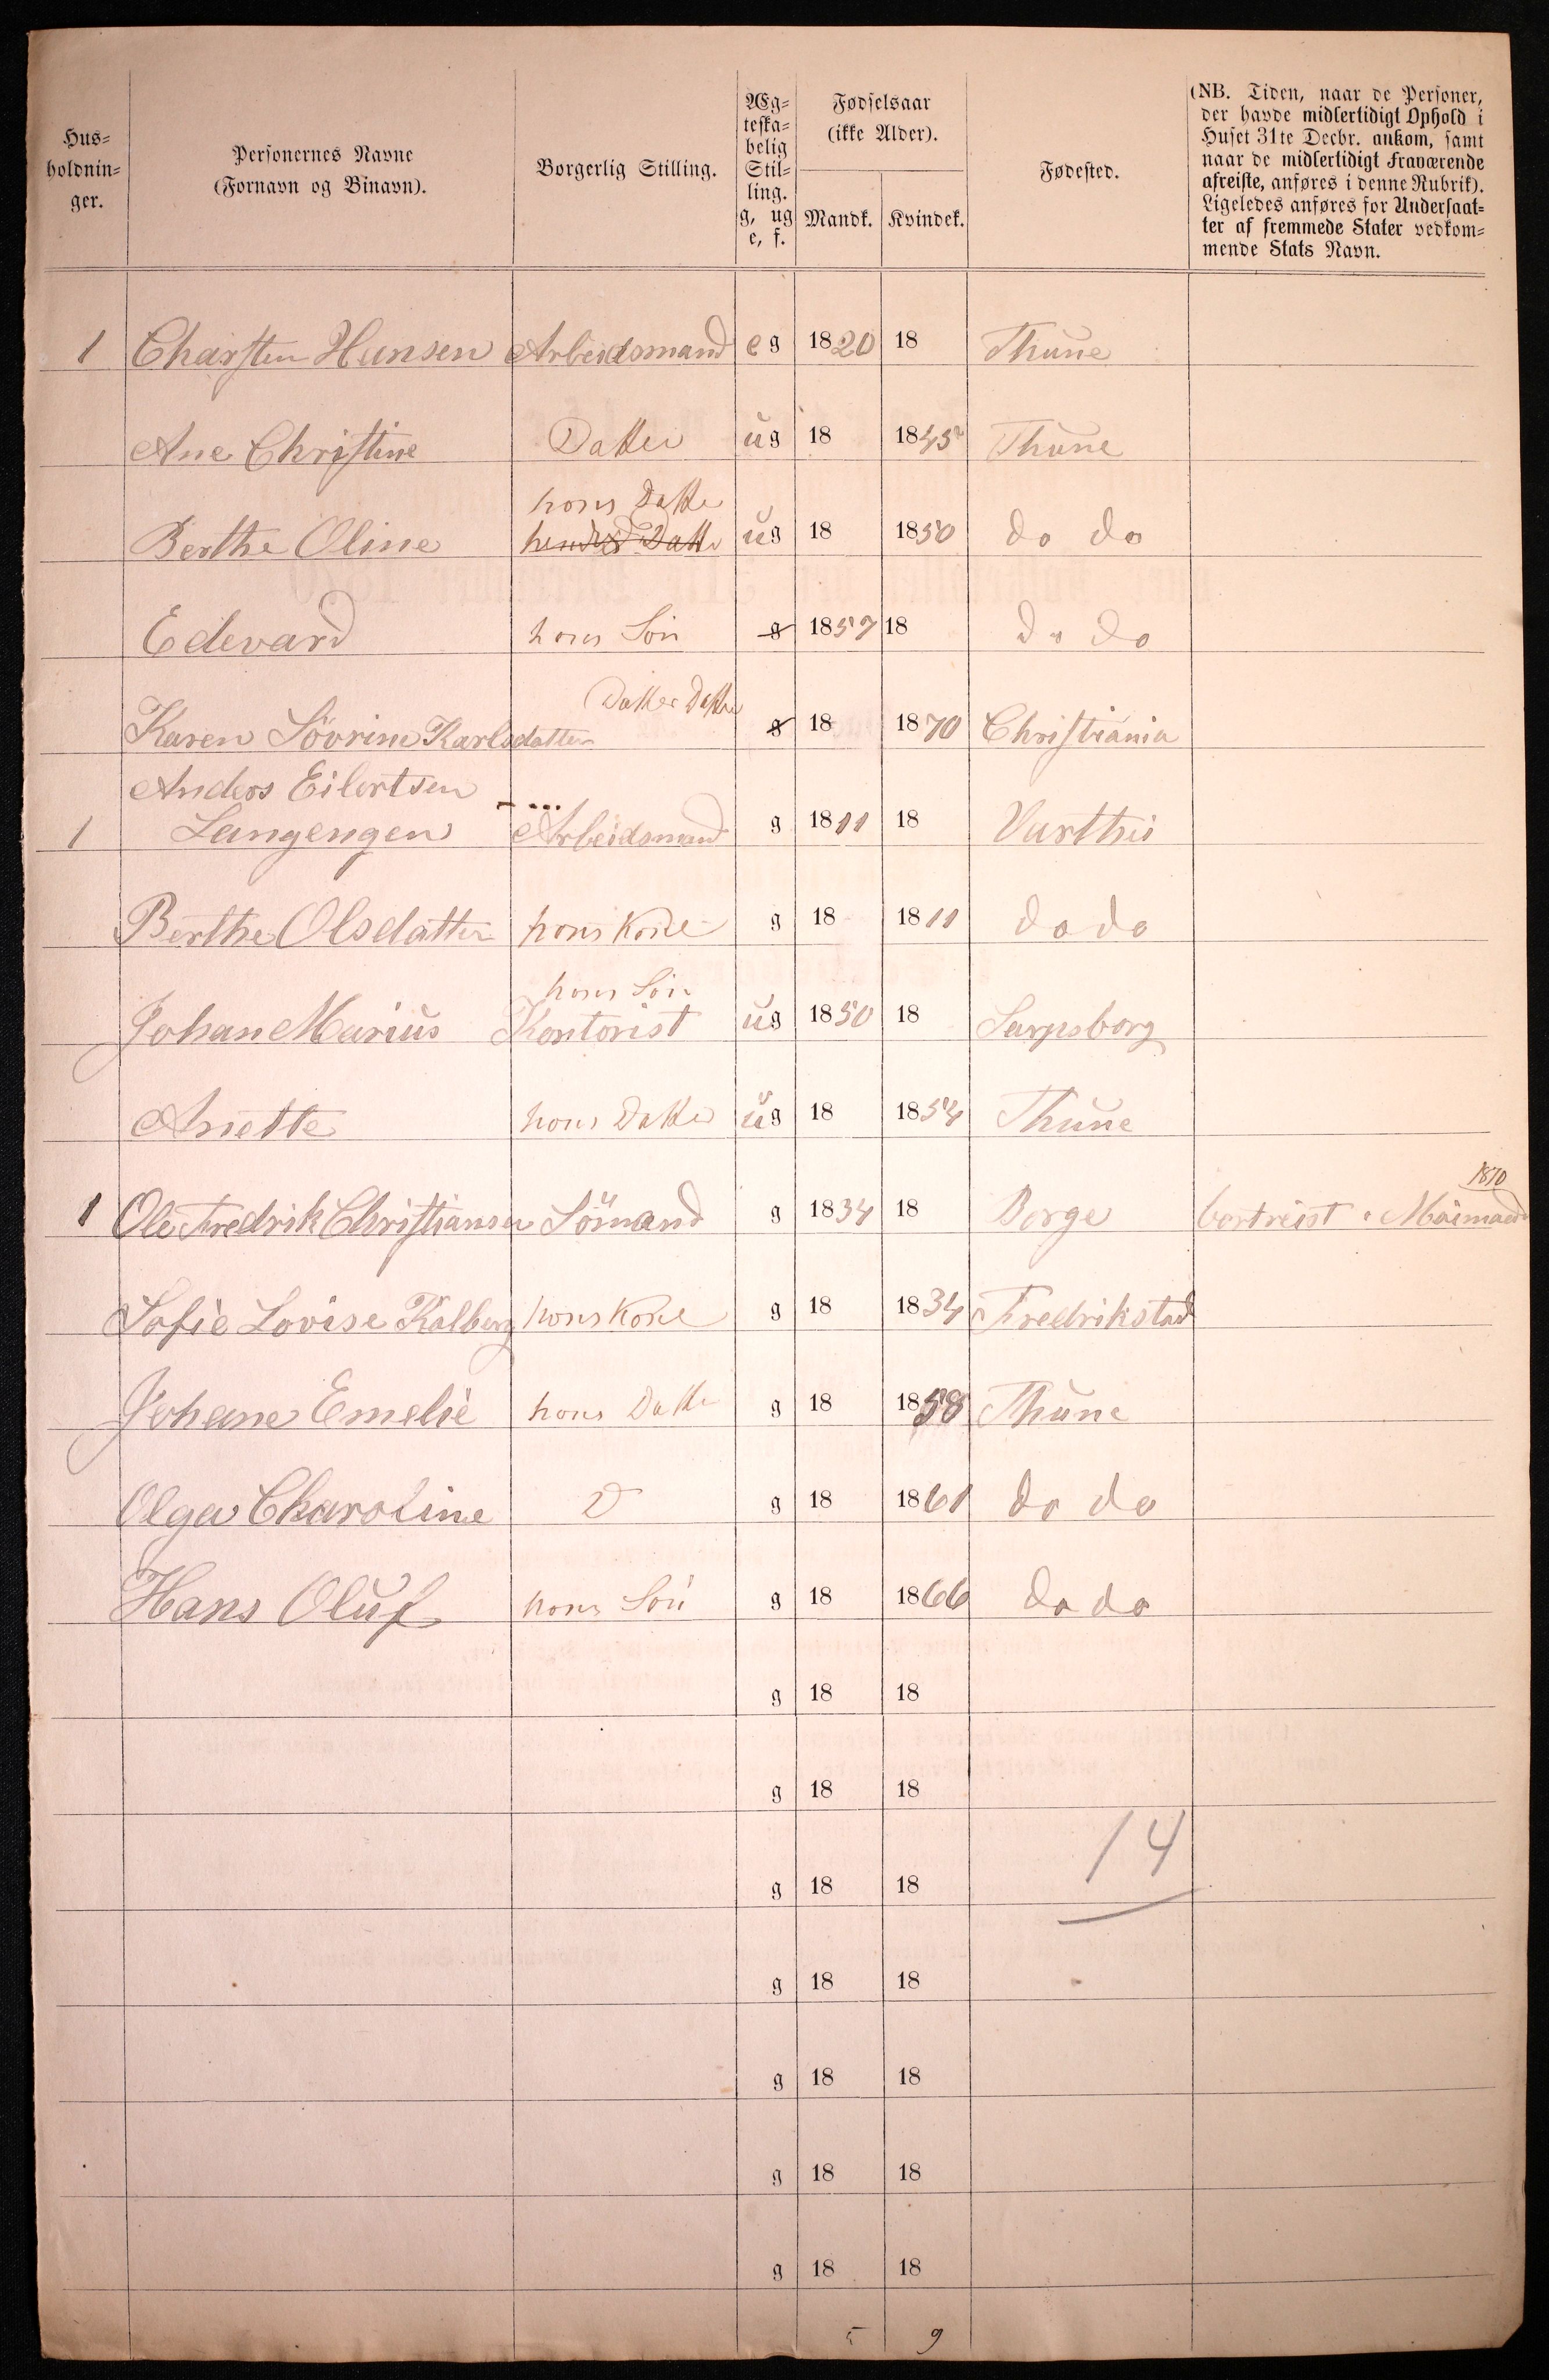 Hus=
holdnin=
ger.
Personernes Navne
(Fornavn og Binavn).
Borgerlig Stilling.
Æg=
teska=
belig
Stil=
ling.
g, ug
e, f.
Fødselsaar
(ikke Alder).
Mandk. Kvindek.
Fødested.
(NB. Tiden, naar de Personer,
der havde midlertidigt Ophold i
Huset 31te Decbr. ankom, samt
naar de midlertidigt fraværende
afreiste, anføres i denne Rubrik).
Ligeledes anføres for Undersaat=
ter af fremmede Stater vedkom=
mende Stats Navn.
1 Charsten Hansen Arbeidsmand eg 1820 18 Thune
Ane Christine Datter ug 18 1845 Thune
hans Datter
Berthe Oline hendes Datter ug 18 1850 do do
Edevard hans Sön g 1857 18 do do
Datter Datter
Karen Sövrine Karlsdatter g 18 1870 Christiania
Anders Eilertsen
1 Langengen Arbeidsmand g 1811 18 Varttei
Berthe Olsdatter hans Kone g 18 1811 do do
hans Sön
Johan Marius Kontorist ug 1850 18 Sarpsborg
Anette hans Datter ug 18 1854 Thune
1870
1 Ole Fredrik Christiansen Sömand g 1834 18 Borge bortreist i Maimaed
Sofie Lovise Kalberg hans Kone g 18 1834 Fredrikstad
Johane Emelie hans Datter g 18 1858 Thune
Olga Charoline D g 18 1861 do do
Hans Oluf hans Sön g 18 1866 do do
g 18 18
g 18 18
14
g 18 18
g 18 18
g 18 18
g 18 18
g 18 18
5 9